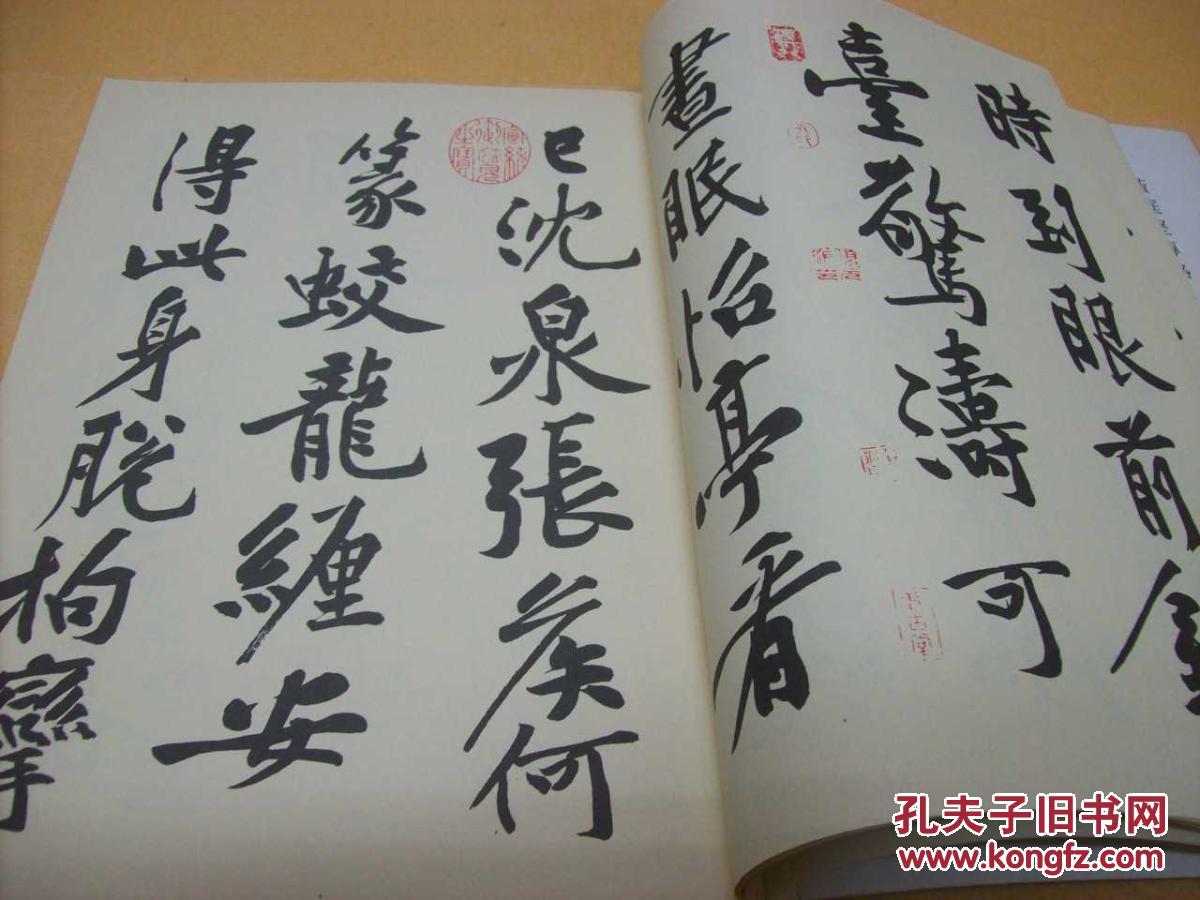 時到眼前
臺驚濤可
晝眠怡亭看
已沈泉張侯何
篆蛟龍纏安
得此身脱拘攣
孔夫子旧书网
www.kongfz.com